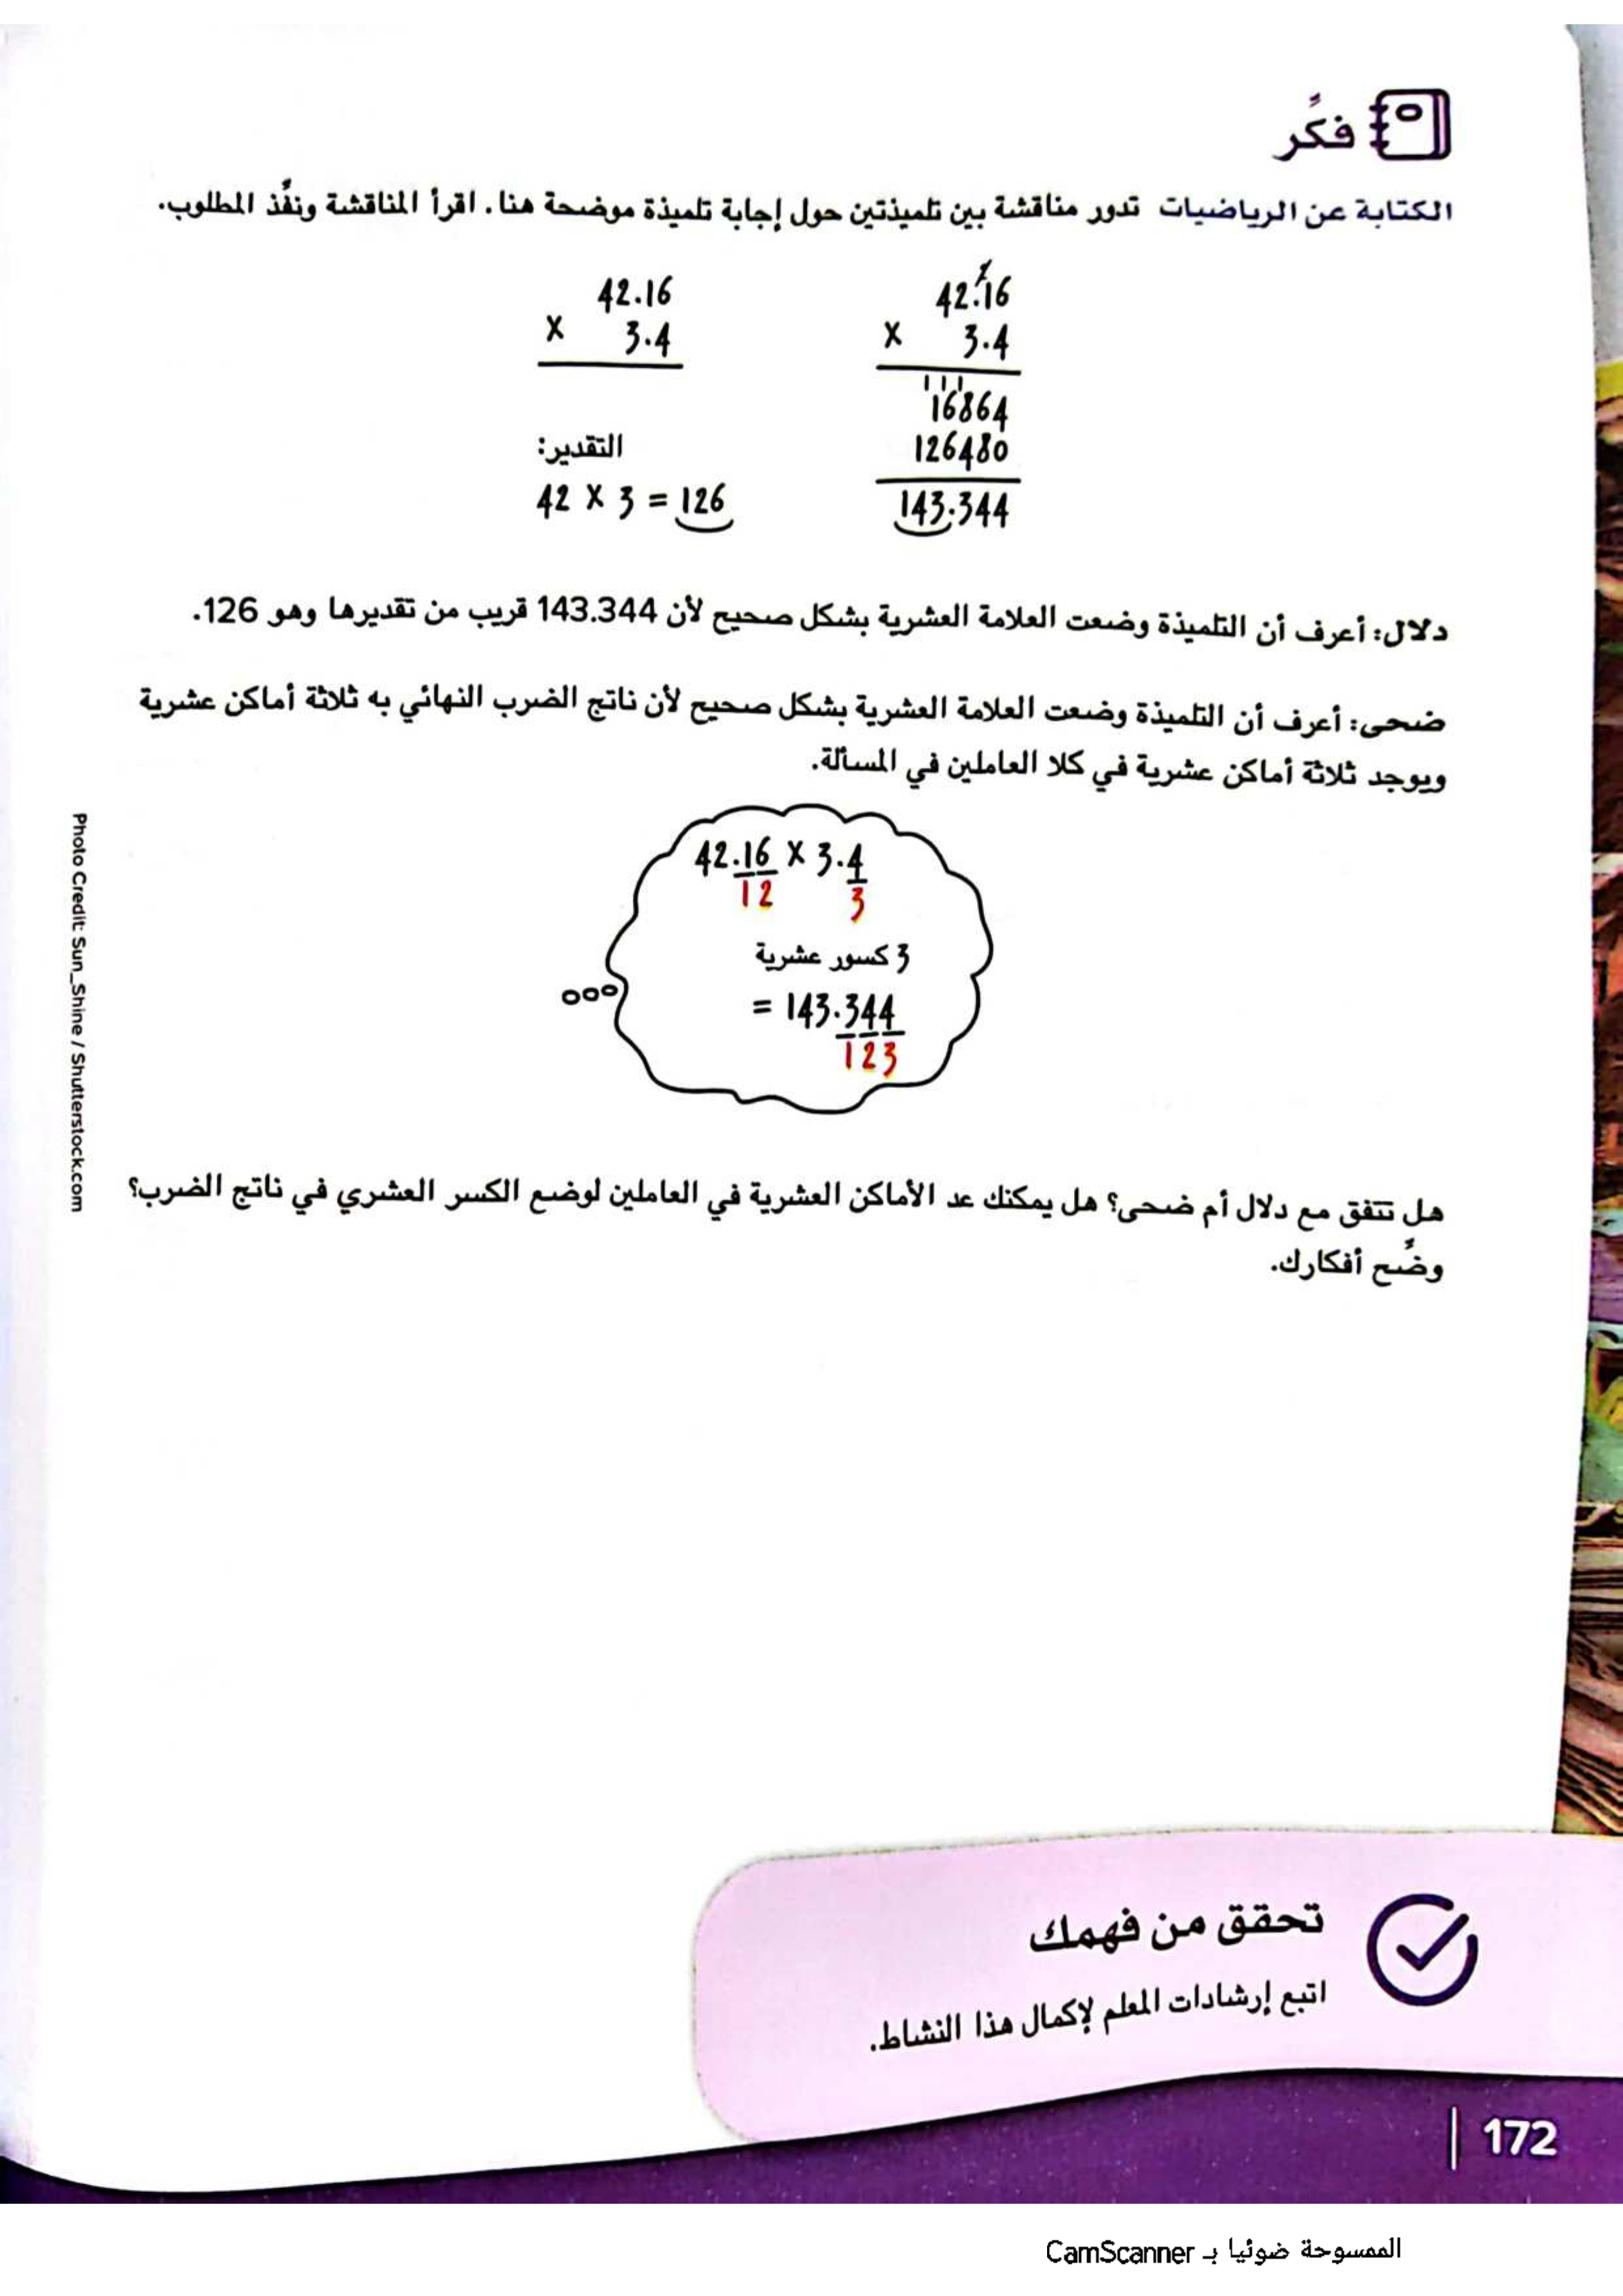 فكّر
الكتابة عن الرياضيات تدور مناقشة بين تلميذتين حول إجابة تلميذة موضحة هنا. اقرأ المناقشة ونفّذ المطلوب.
42.16
x 3.4
التقدير:
42 x 3 = 126
2
42.16
x 3.4
1 1 1
16864
126480
143.344
دلال: أعرف أن التلميذة وضعت العلامة العشرية بشكل صحيح لأن 143.344 قريب من تقديرها وهو 126.
ضحى: أعرف أن التلميذة وضعت العلامة العشرية بشكل صحيح لأن ناتج الضرب النهائي به ثلاثة أماكن عشرية
ويوجد ثلاثة أماكن عشرية في كلا العاملين في المسألة.
42.16 x 3.4
1 2 3
3 كسور عشرية
= 143.344
1 2 3
هل تتفق مع دلال أم ضحى؟ هل يمكنك عد الأماكن العشرية في العاملين لوضع الكسر العشري في ناتج الضرب؟
وضّح أفكارك.
Photo Credit: Sun_Shine / Shutterstock.com
تحقق من فهمك
اتبع إرشادات المعلم لإكمال هذا النشاط.
172
الممسوحة ضوئيا بـ CamScanner